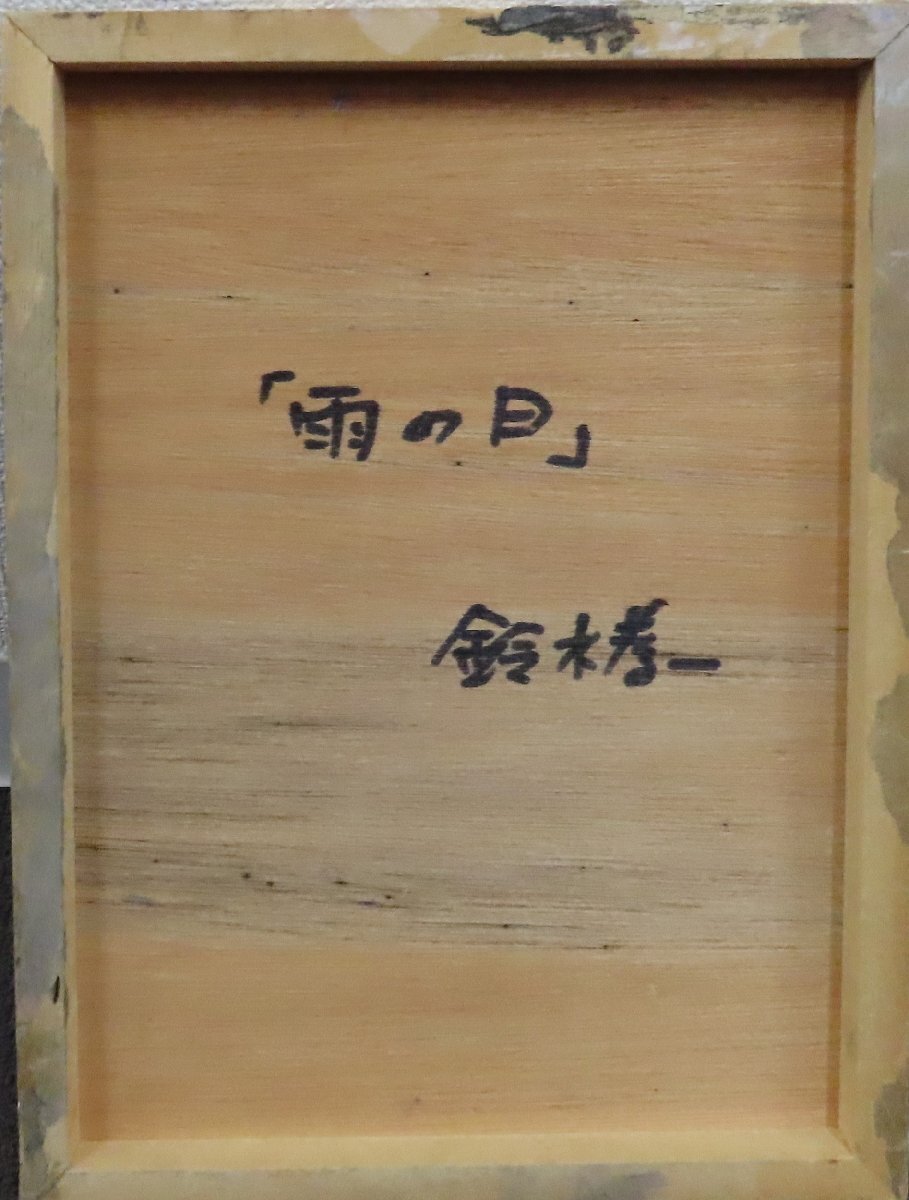 「雨の日」
鈴木善一